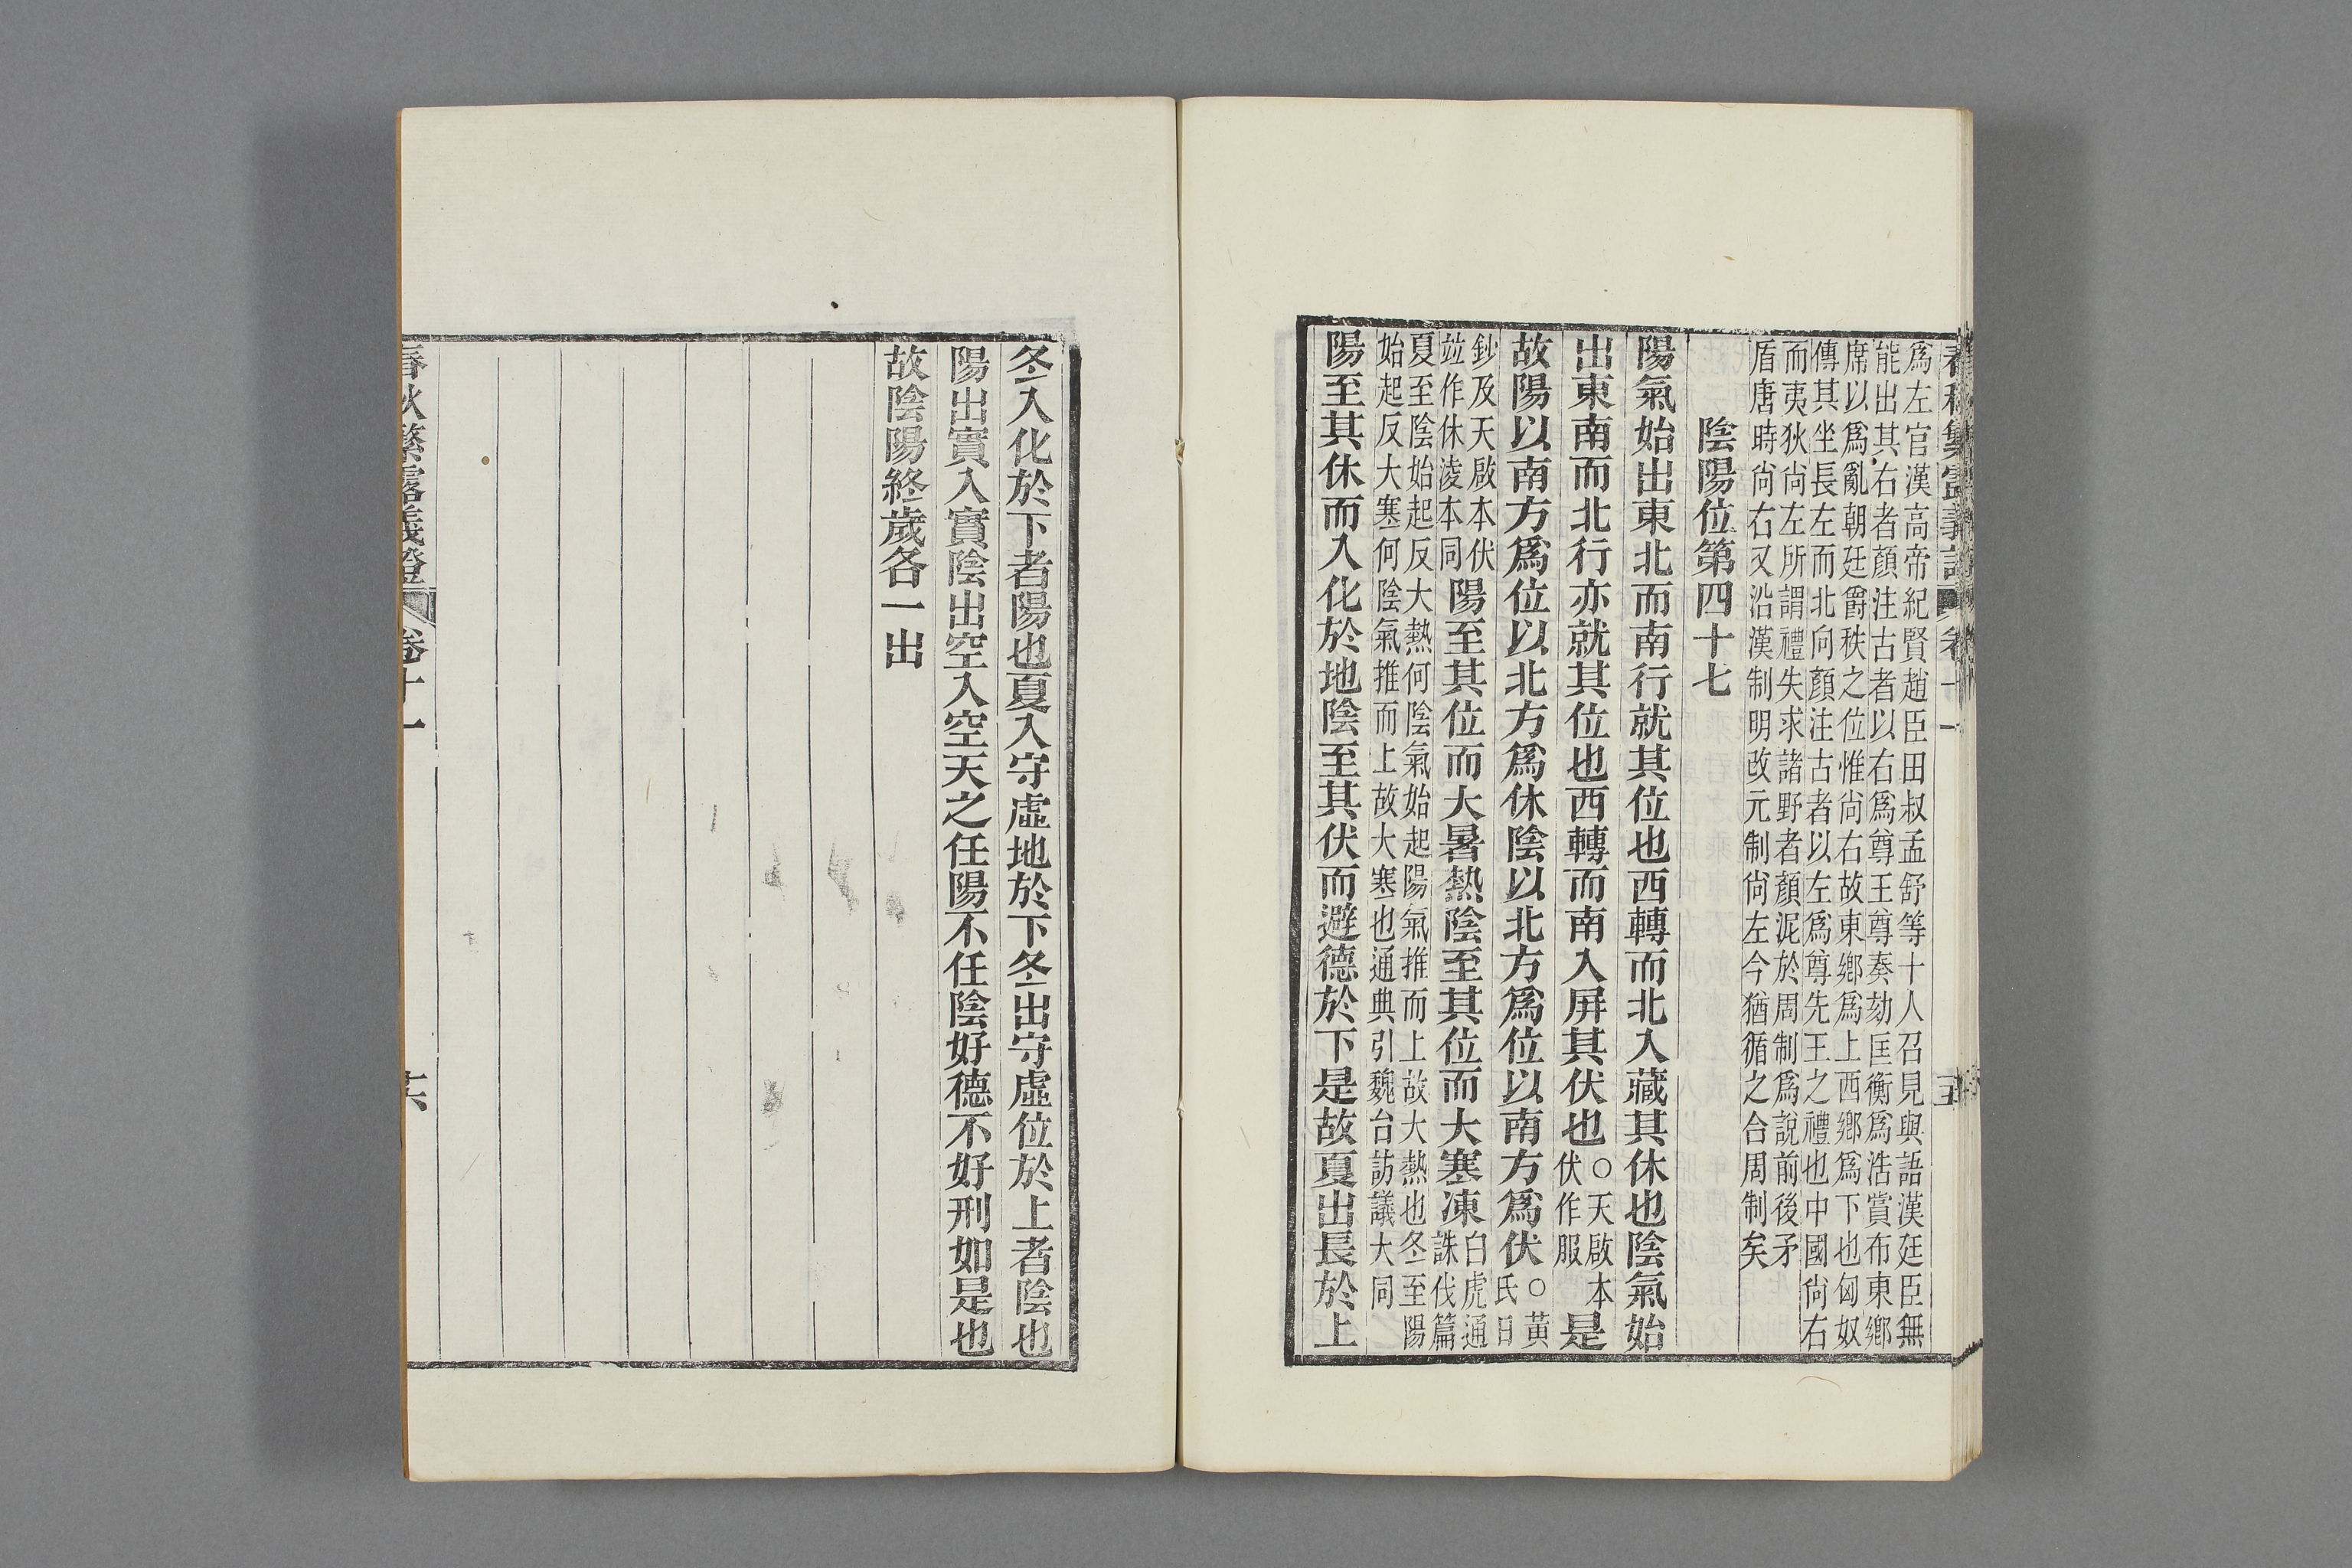 爲左官漢高帝紀賢趙臣田叔孟舒等十人召見與語漢廷臣無
能出其右者顏注古者以右爲尊王尊奏劾匡衡爲浩賞布東鄕
席以爲亂朝廷爵秩之位惟尙右故東鄕爲上西鄕爲下也匈奴
傳其坐長左而北向顏注古者以左爲尊先王之禮也中國尙右
而夷狄尙左所謂禮失求諸野者顏泥於周制爲說前後矛
盾唐時尙右又沿漢制明改元制尙左今猶循之合周制矣
陰陽位第四十七
陽氣始出東北而南行就其位也西轉而北入藏其休也陰氣始
出東南而北行亦就其位也西轉而南入屏其伏也○天啟本伏作服是
故陽以南方爲位以北方爲休陰以北方爲位以南方爲伏○黃氏日
鈔及天啟本伏竝作休淩本同陽至其位而大暑熱陰至其位而大寒凍白虎通誅伐篇
夏至陰始起反大熱何陰氣始起陽氣推而上故大熱也冬至陽
始起反大寒何陰氣推而上故大寒也通典引魏台訪議大同
陽至其休而入化於地陰至其伏而避德於下是故夏出長於上
冬入化於下者陽也夏入守虛地於下冬出守虛位於上者陰也
陽出實入實陰出空入空天之任陽不任陰好德不好刑如是也
故陰陽終歲各一出
春秋繁露義證 卷十一